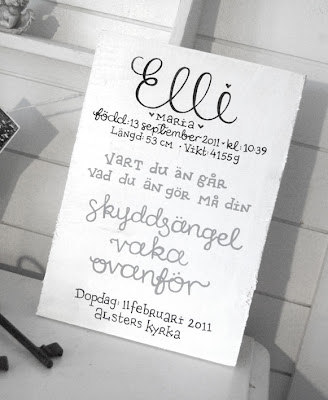 Elli
♥ MARIA ♥
född: 13 september 2011 · kl: 10:39
Längd: 53 cm · Vikt: 4155g
VART DU ÄN GÅR
VAD DU ÄN GÖR MÅ DIN
skyddsängel
vaka
ovanför
Dopdag: 11 februari 2011
ALSTERS KYRKA